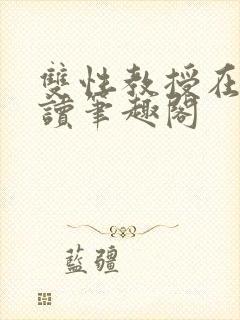 雙性教授在
讀筆趣閣
藍疆